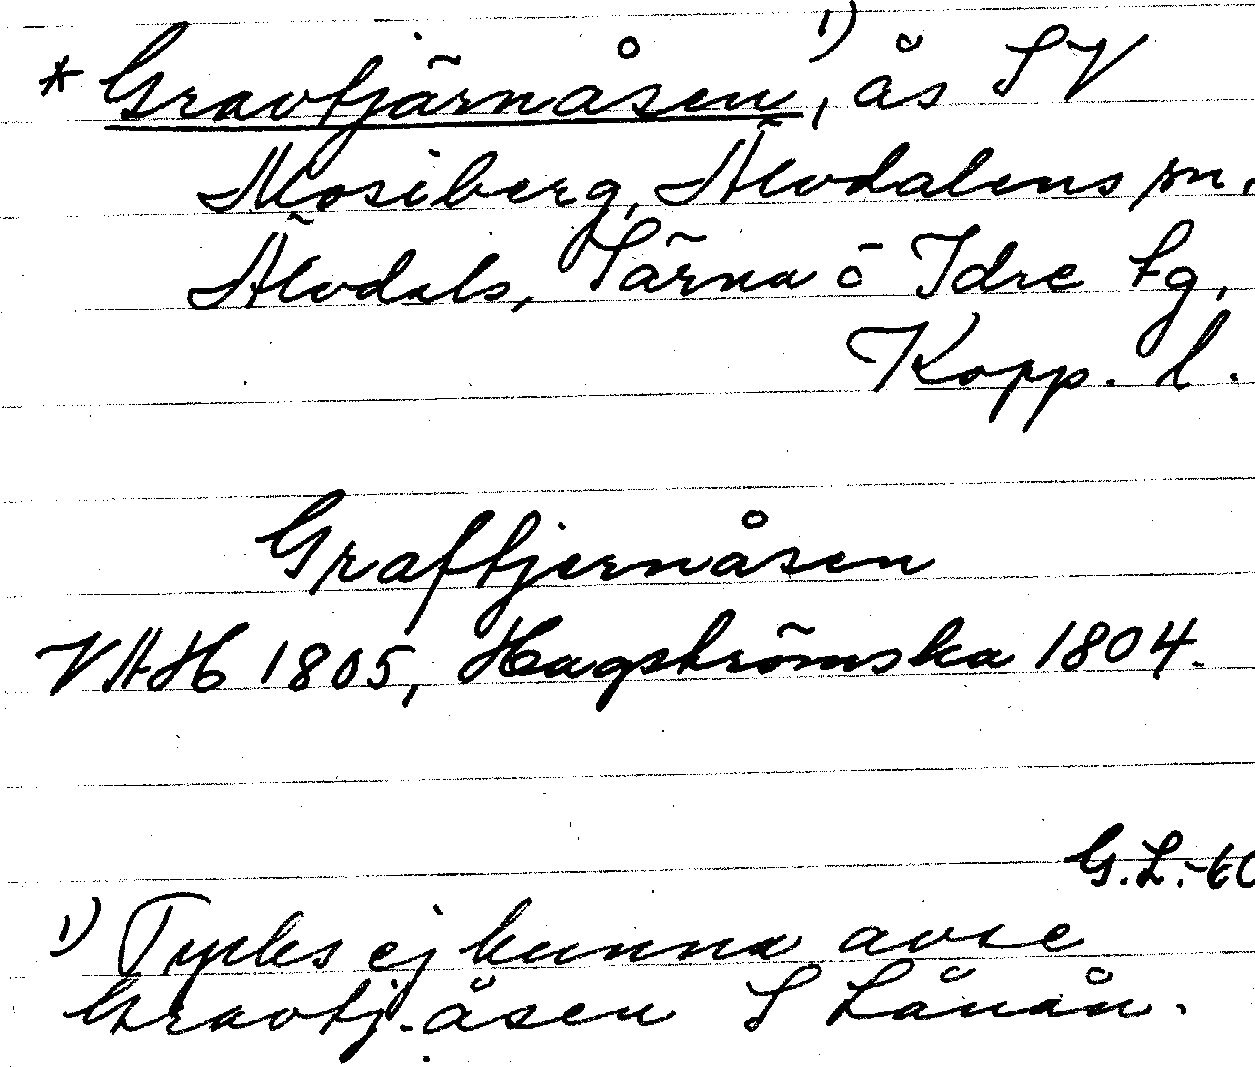 * Gravtjärnåsen¹⁾, ås SV
Mosiberg, Älvdalens sn,
Älvdals, Särna o Idre tg,
Kopp. l.
Graftjernåsen
VAH 1805, Hagströmska 1804.
G.L.-60
¹⁾ Tycks ej kunna avse
Gravtj.åsen S Lånån.